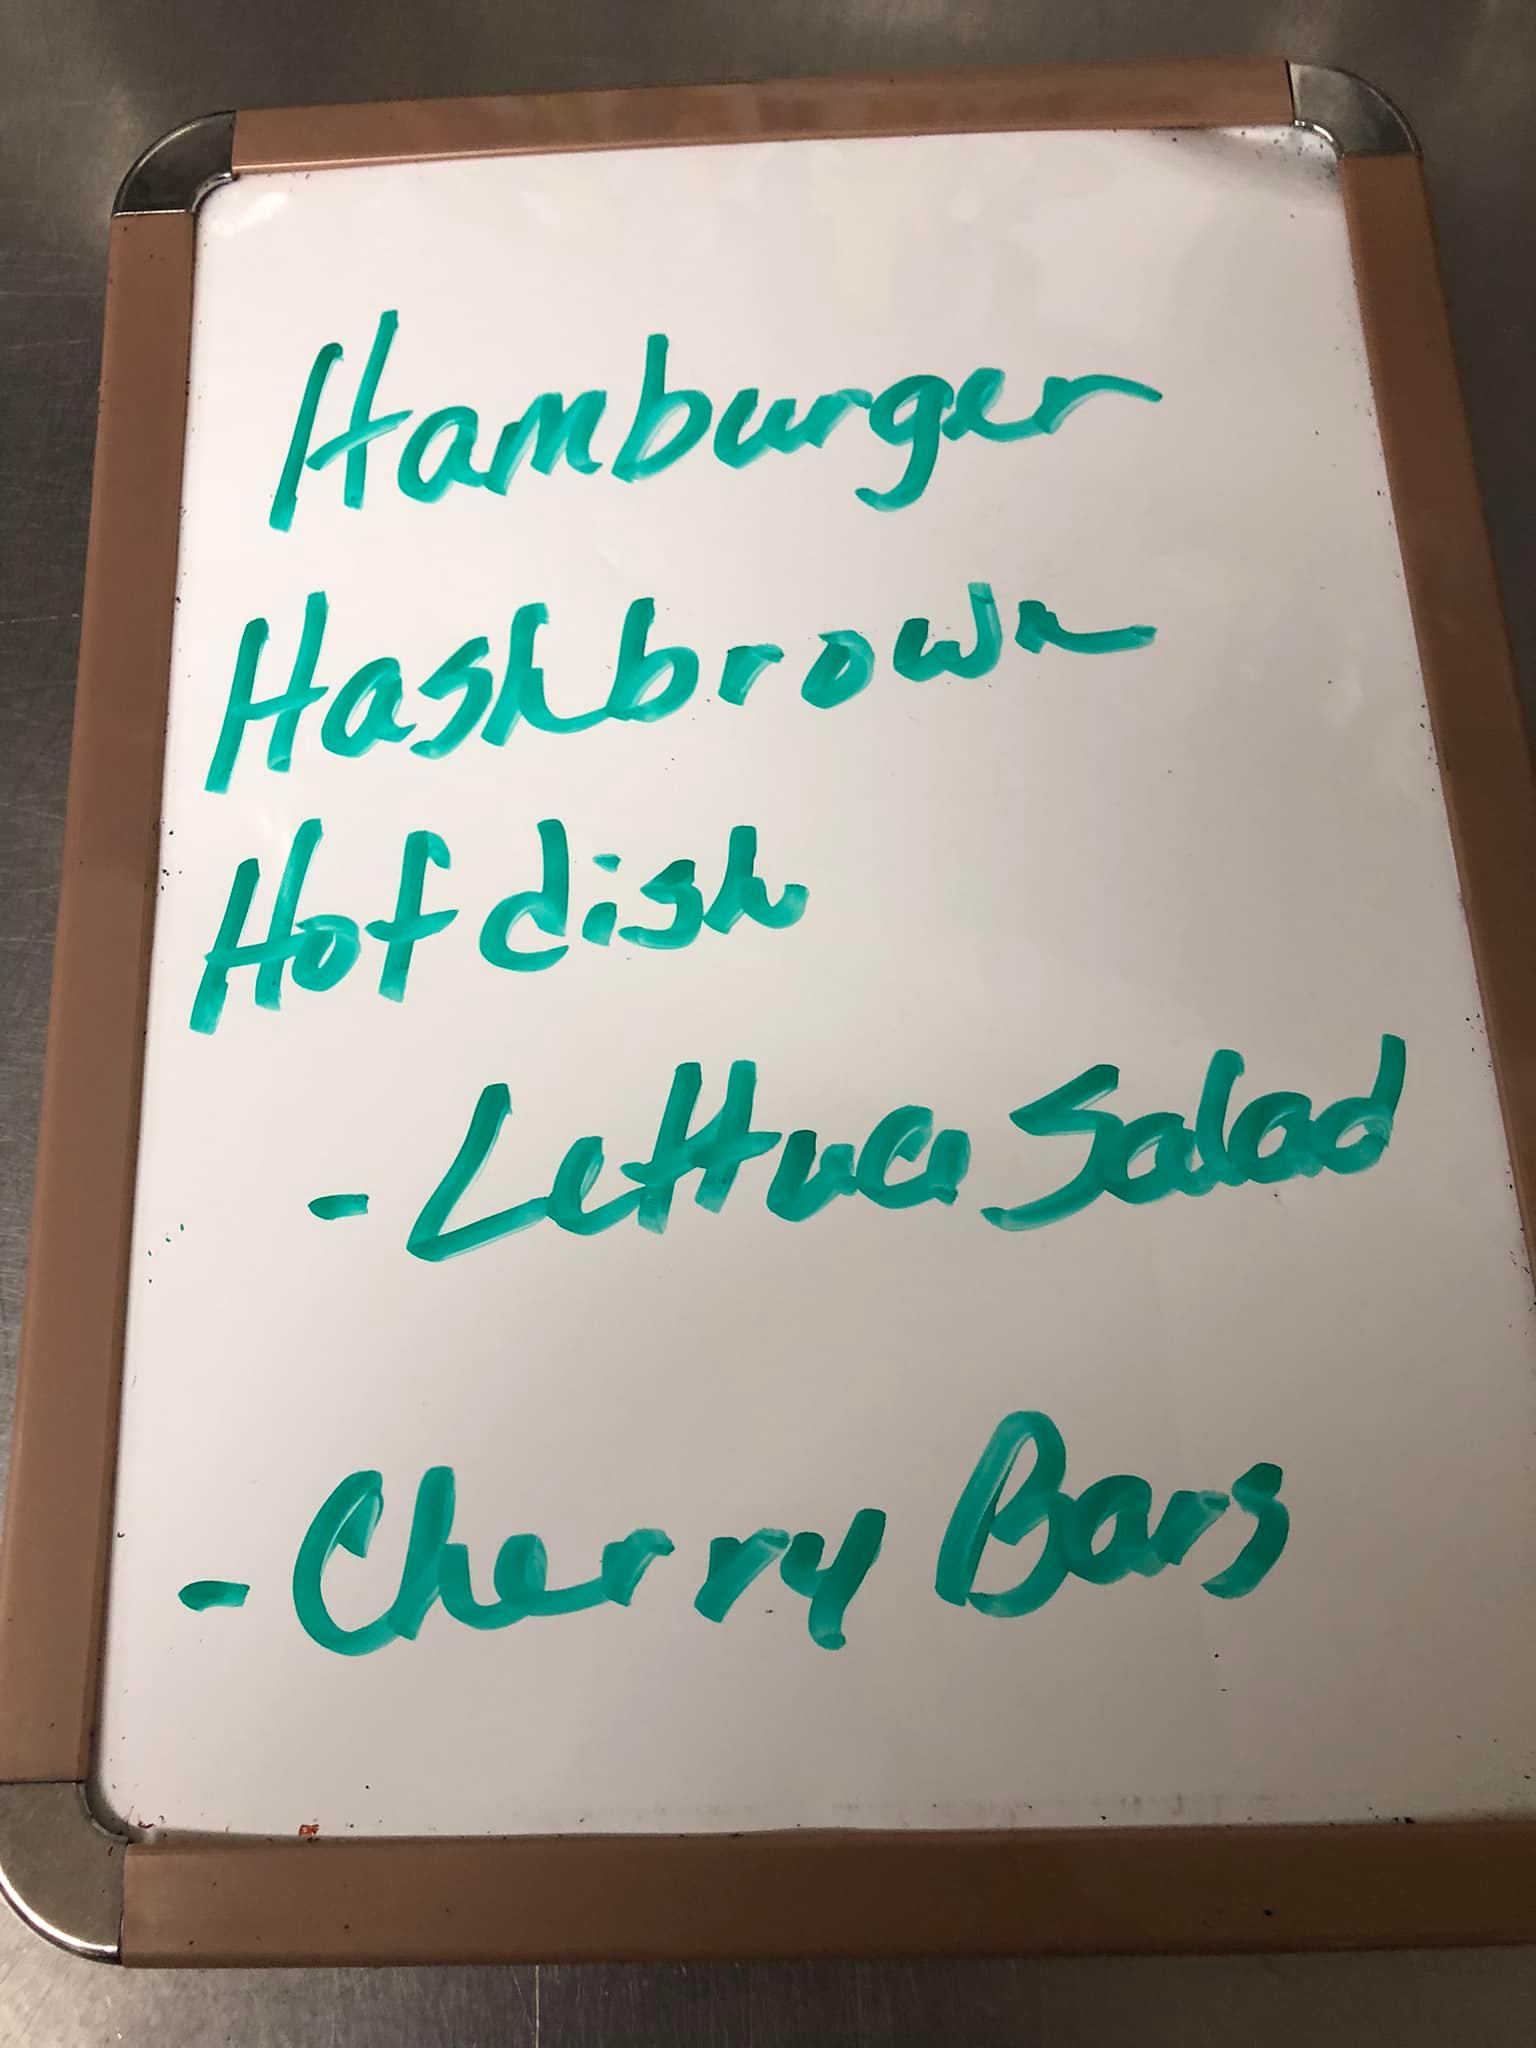 Hamburger
Hashbrown
Hotdish
- Lettuce Salad
- Cherry Bars